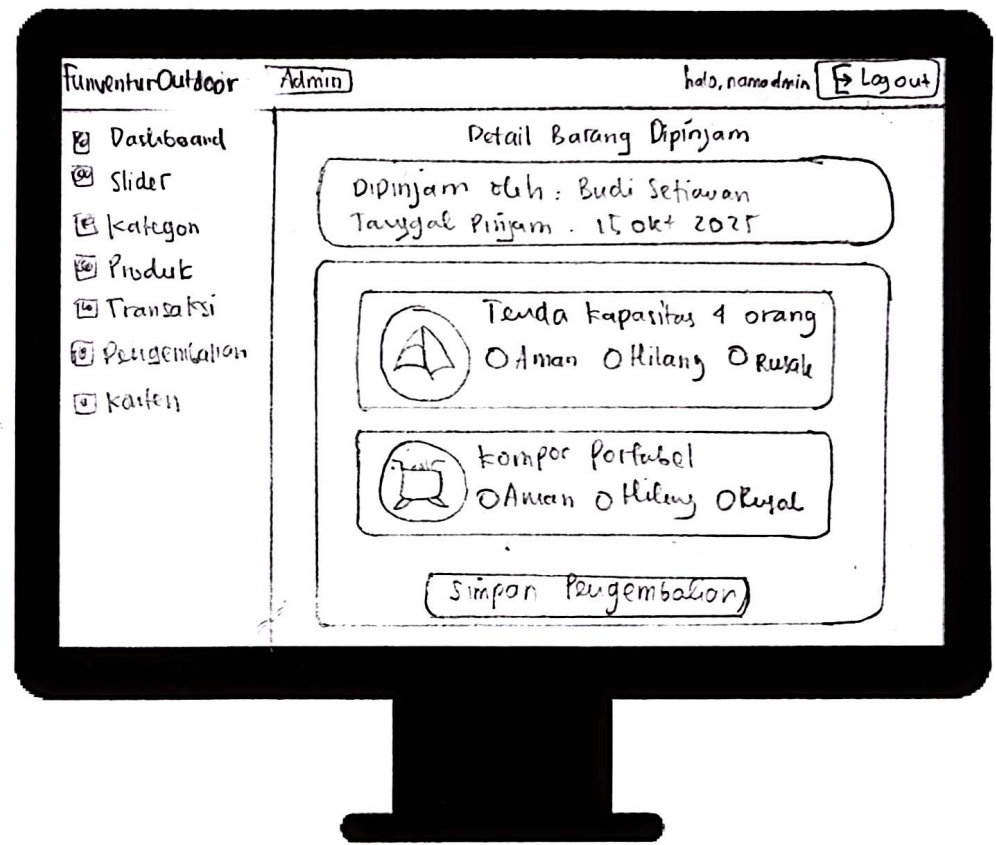 FunventurOutdoor Admin halo, namadmin Logout
Dashboard
Slider
Kategori
Produk
Transaksi
Pengembalian
Konten
Detail Barang Dipinjam
Dipinjam oleh : Budi Setiawan
Tanggal Pinjam . 15 okt 2025
Tenda kapasitas 4 orang
Aman Hilang Rusak
kompor Portabel
Aman Hilang Rusak
Simpan Pengembalian